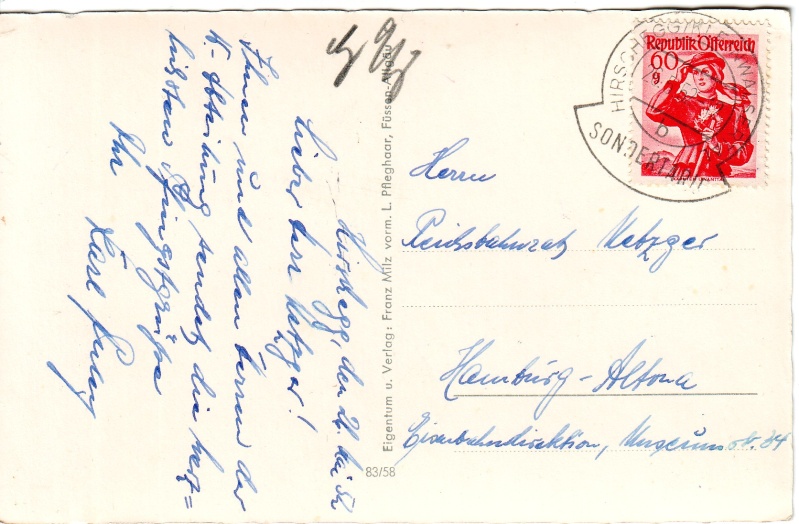 Hirschegg, den 26. Mai 52
Lieber Herr Metzger!
Ihnen und allen Herren der
15. Abteilung sendet die herz=
lichsten Pfingstgrüße
Ihr
Karl
Eigentum u. Verlag: Franz Milz vorm. L. Pfleghaar, Füssen-Allgäu
83/58
Republik Österreich
60
g
HIRSCHEGG
b
SONDERTARIF
Herrn
Reichsbahnrat Metzger
Hamburg-Altona
Eisenbahndirektion, Museumstr. 34